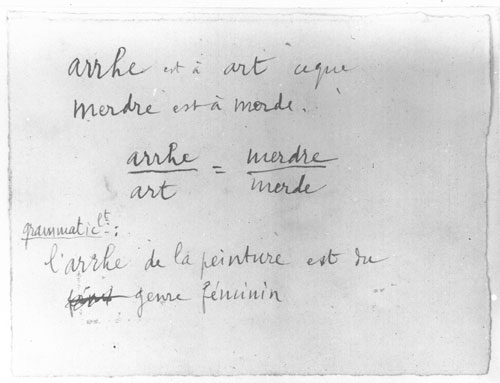 arrhe est à art ceque
merdre est à merde.
arrhe = merdre
art merde
grammaticlt:
l'arrhe de la peinture est du
genre féminin